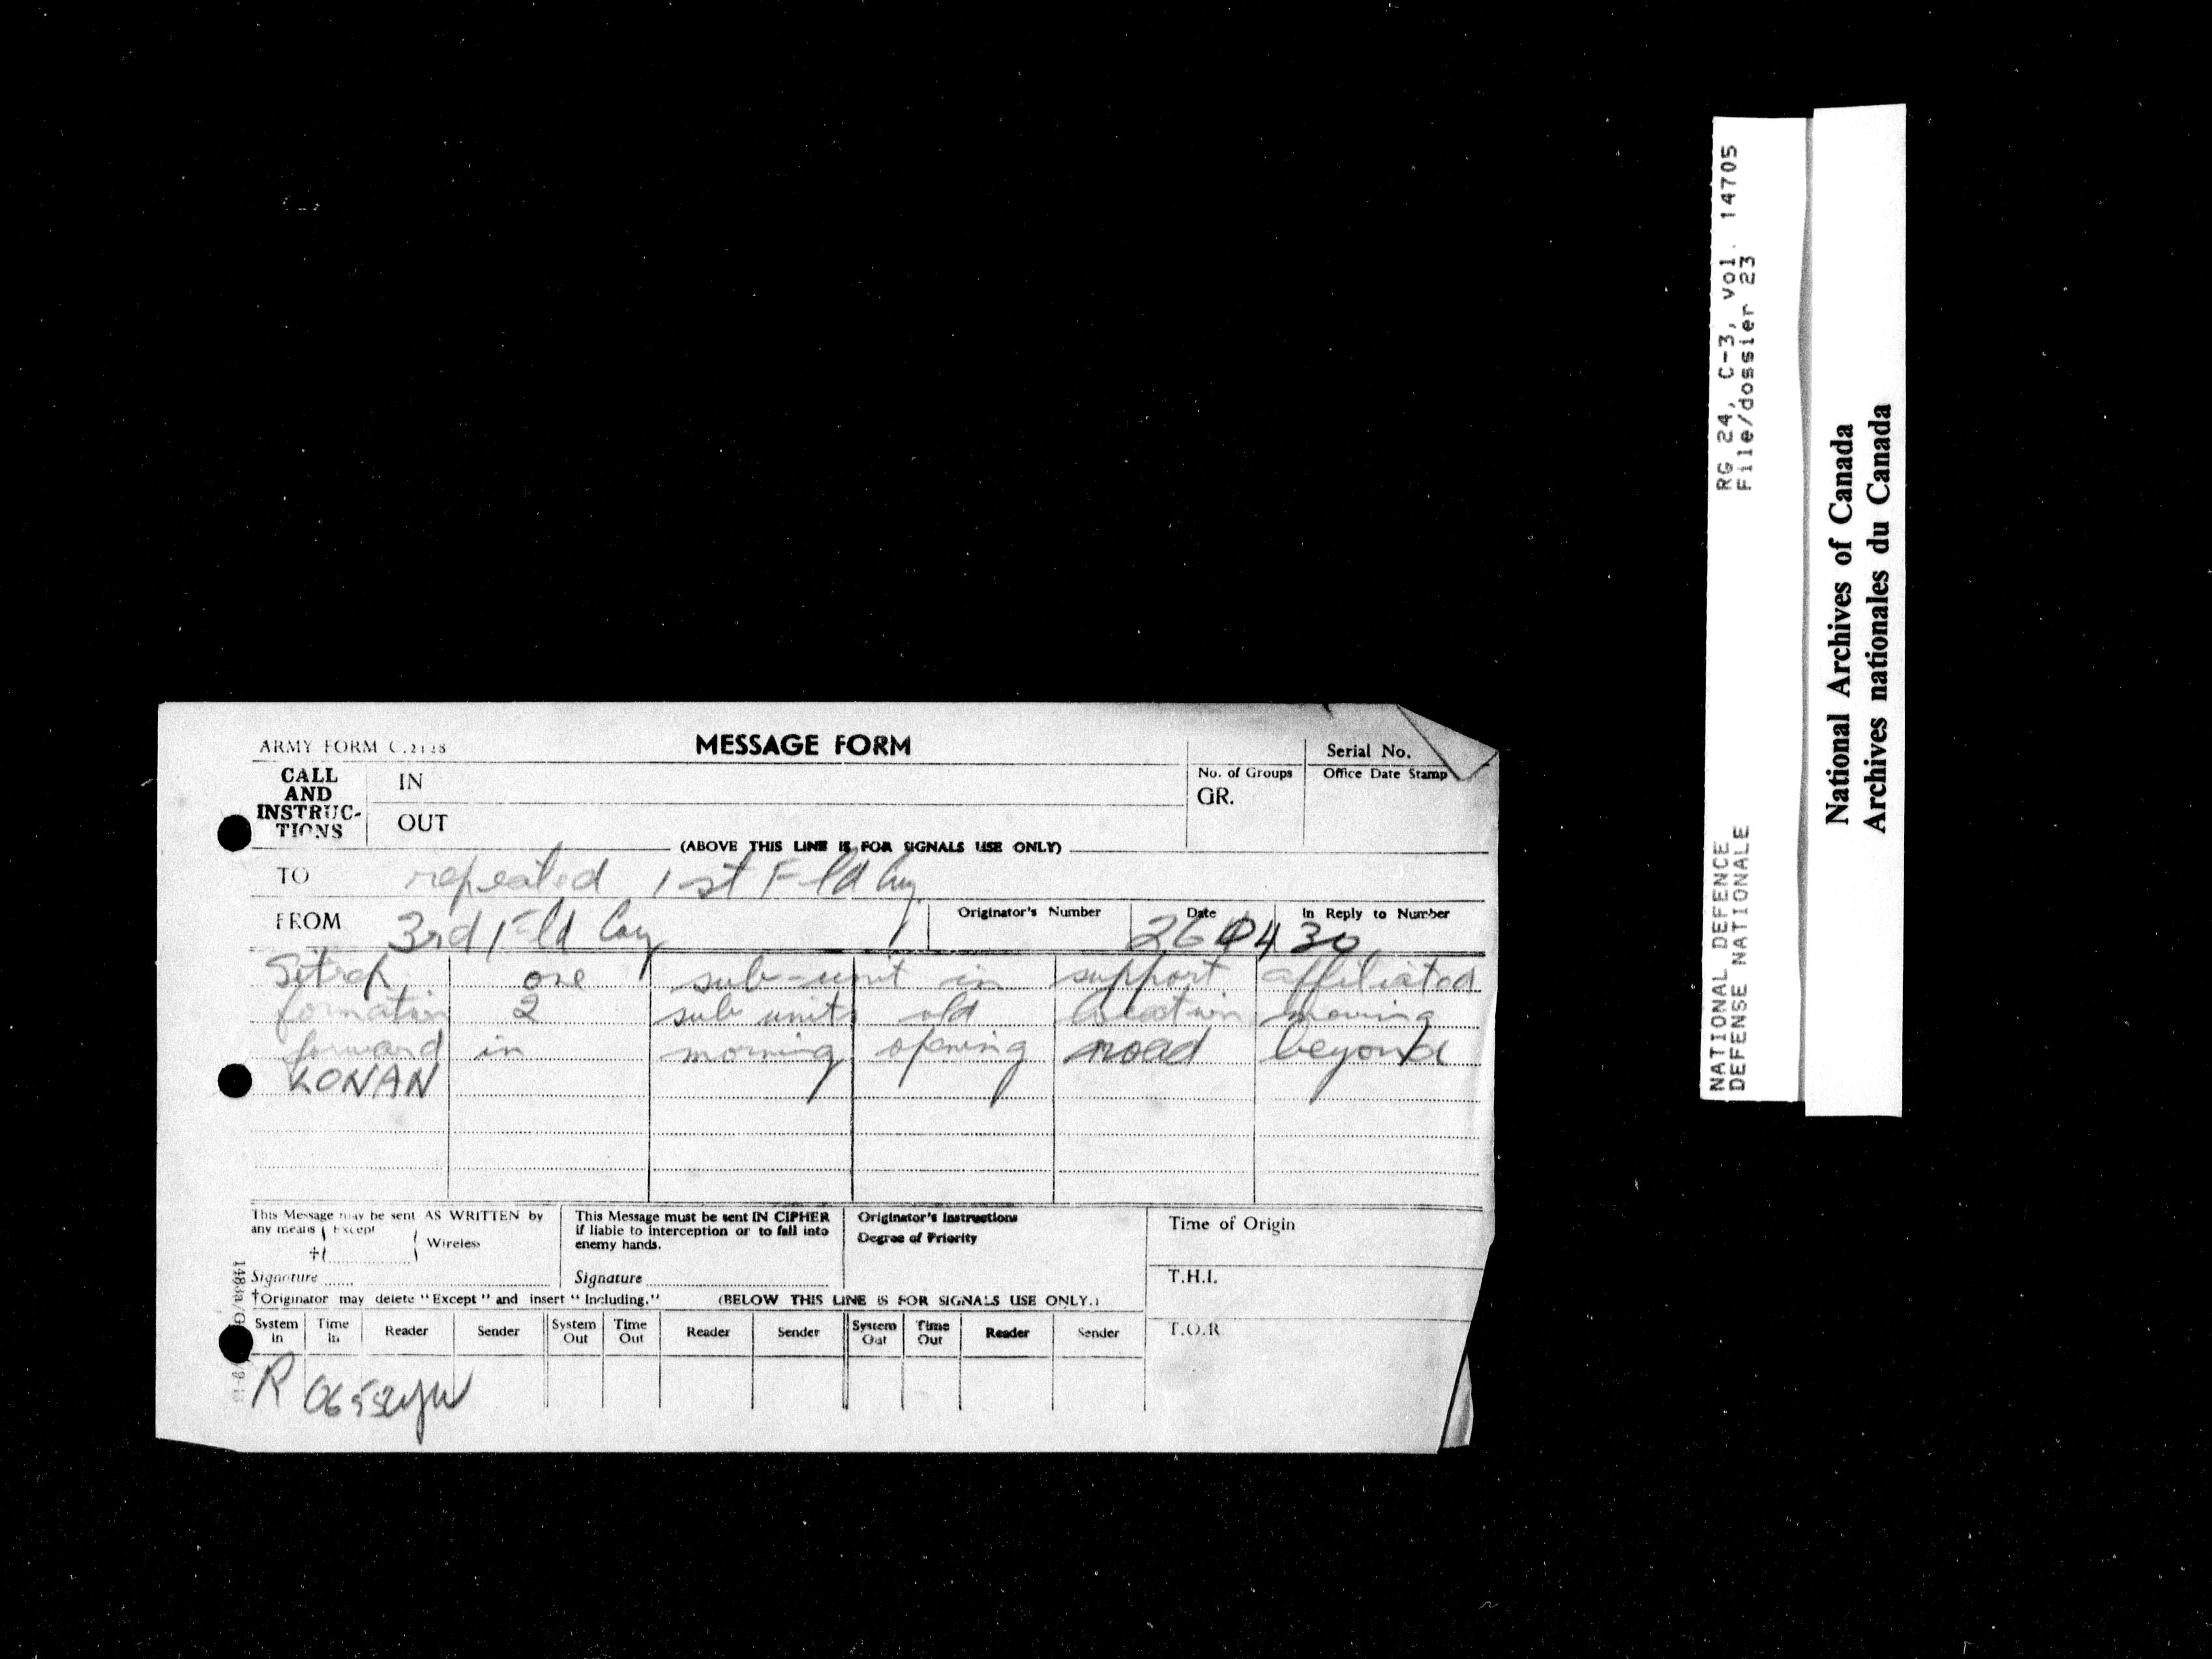 ARMY FORM C.2128
MESSAGE FORM
Serial No.
CALL AND INSTRUC-TIONS
IN
No. of Groups
Office Date Stamp
GR.
OUT
(ABOVE THIS LINE IS FOR SIGNALS USE ONLY)
TO repeated 1st Fld Coy
FROM 3rd Fld Coy
Originator's Number
Date
In Reply to Number
260430
Sitrep one sub-unit in support affiliated
formation 2 sub units old location moving
forward in morning opening road beyond
KONAN
This Message may be sent AS WRITTEN by
any means Except
† Wireless
Signature
This Message must be sent IN CIPHER
if liable to interception or to fall into
enemy hands.
Signature
Originator's Instructions
Degree of Priority
Time of Origin
T.H.I.
T.O.R.
†Originator may delete "Except" and insert "Including."
(BELOW THIS LINE IS FOR SIGNALS USE ONLY.)
System In Time In Reader Sender System Out Time Out Reader Sender System Out Time Out Reader Sender
R
RG 24, C-3, vol. 14705
File/dossier 23
NATIONAL DEFENCE
DEFENSE NATIONALE
National Archives of Canada
Archives nationales du Canada